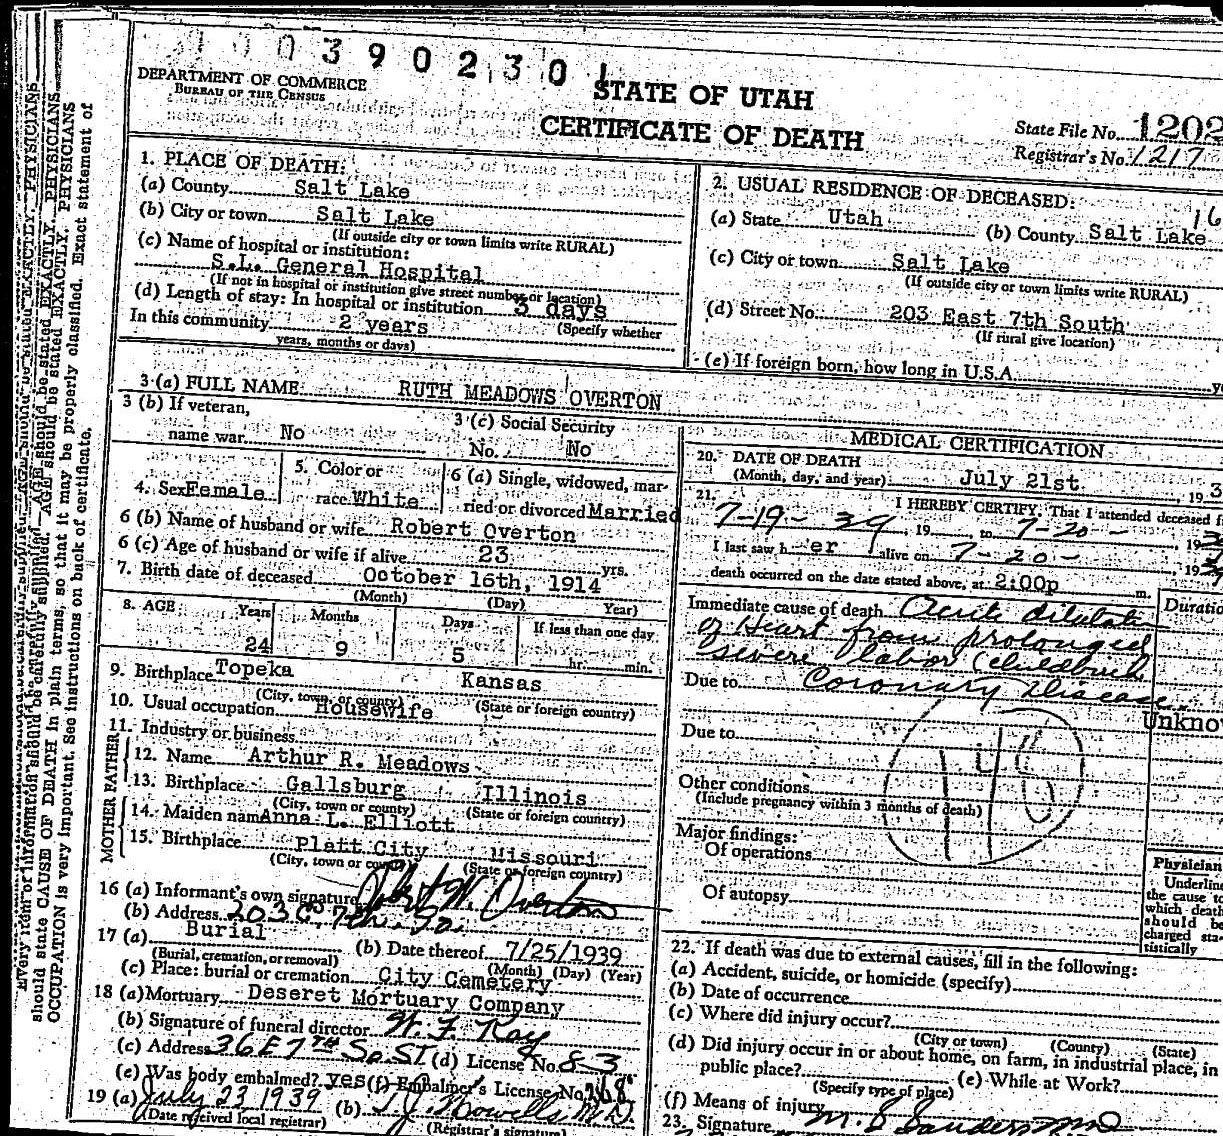 390230
DEPARTMENT OF COMMERCE
BUREAU OF THE CENSUS
STATE OF UTAH
CERTIFICATE OF DEATH
State File No. 1202
Registrar's No. 1217
1. PLACE OF DEATH:
(a) County Salt Lake
(b) City or town Salt Lake
(If outside city or town limits write RURAL)
(c) Name of hospital or institution:
S.L. General Hospital
(If not in hospital or institution give street number or location)
(d) Length of stay: In hospital or institution 3 days
In this community 2 years (Specify whether
years, months or days)
2. USUAL RESIDENCE OF DECEASED:
16
(a) State Utah (b) County Salt Lake
(c) City or town Salt Lake
(If outside city or town limits write RURAL)
(d) Street No. 203 East 7th South
(If rural give location)
(e) If foreign born, how long in U.S.A.
3 (a) FULL NAME RUTH MEADOWS OVERTON
3 (b) If veteran,
name war No
3 (c) Social Security
No. No
4. Sex Female
5. Color or
race White
6 (a) Single, widowed, mar-
ried or divorced Married
6 (b) Name of husband or wife Robert Overton
6 (c) Age of husband or wife if alive 23 yrs.
7. Birth date of deceased October 16th, 1914
(Month) (Day) Year)
8. AGE Years Months Days If less than one day
24 9 5 hr. min.
9. Birthplace Topeka Kansas
(City, town, or county) (State or foreign country)
10. Usual occupation Housewife
11. Industry or business
FATHER
12. Name Arthur R. Meadows
13. Birthplace Gallsburg Illinois
(City, town or county) (State or foreign country)
MOTHER
14. Maiden name Anna L. Elliott
15. Birthplace Platt City Missouri
(City, town or county) (State or foreign country)
16 (a) Informant's own signature Robert W. Overton
(b) Address 203 E. 7th So.
17 (a) Burial (b) Date thereof 7/25/1939
(Burial, cremation, or removal) (Month) (Day) (Year)
(c) Place: burial or cremation City Cemetery
18 (a) Mortuary Deseret Mortuary Company
(b) Signature of funeral director W. F. Kay
(c) Address 36 E 7TH So. ST (d) License No. 83
(e) Was body embalmed? yes (f) Embalmer's License No. 268
19 (a) July 23 1939 (b) T.J. Howells M.D.
(Date received local registrar) (Registrar's signature)
MEDICAL CERTIFICATION
20. DATE OF DEATH
(Month, day, and year) July 21st. , 193
21. I HEREBY CERTIFY, That I attended deceased f
7-19-39, 19 to 7-20-, 19
I last saw her alive on 7-20-, 19
death occurred on the date stated above, at 2:00p m.
Immediate cause of death Acute dilatation
of Heart from prolonged
severe labor (childbirth
Due to Coronary Disease.
Duratio
Unkno
Due to
Other conditions
(Include pregnancy within 3 months of death)
Major findings:
Of operations
Of autopsy
Physician
Underline
the cause to
which death
should be
charged sta-
tistically
22. If death was due to external causes, fill in the following:
(a) Accident, suicide, or homicide (specify)
(b) Date of occurrence
(c) Where did injury occur?
(City or town) (County) (State)
(d) Did injury occur in or about home, on farm, in industrial place, in
public place? (e) While at Work?
(Specify type of place)
(f) Means of injury
23. Signature M. S. Sanders MD
should state CAUSE OF DEATH in plain terms, so that it may be properly classified. Exact statement of
OCCUPATION is very important. See instructions on back of certificate.